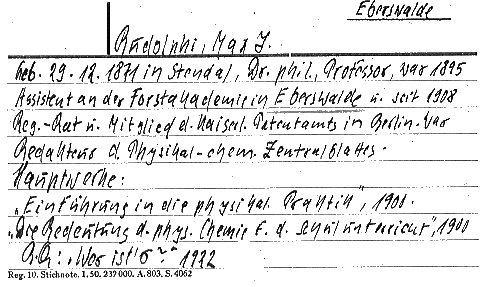 Eberswalde
Rudolphi, Max J.
Geb. 29.12.1871 in Stendal, Dr. phil., Professor, war 1895
Assistent an der Forstakademie in Eberswalde u. seit 1908
Reg.-Rat u. Mitglied d. Kaiserl. Patentamts in Berlin. War
Redakteur d. Physikal-chem. Zentralblattes.
Hauptwerke:
„Einführung in die physikal. Praktik", 1901.
„Die Bedeutung d. phys. Chemie f. d. Schulunterricht", 1900
„Wer ist's?" 1922
Reg. 10. Stichnote. I. 50. 237000. A. 803. S. 4062